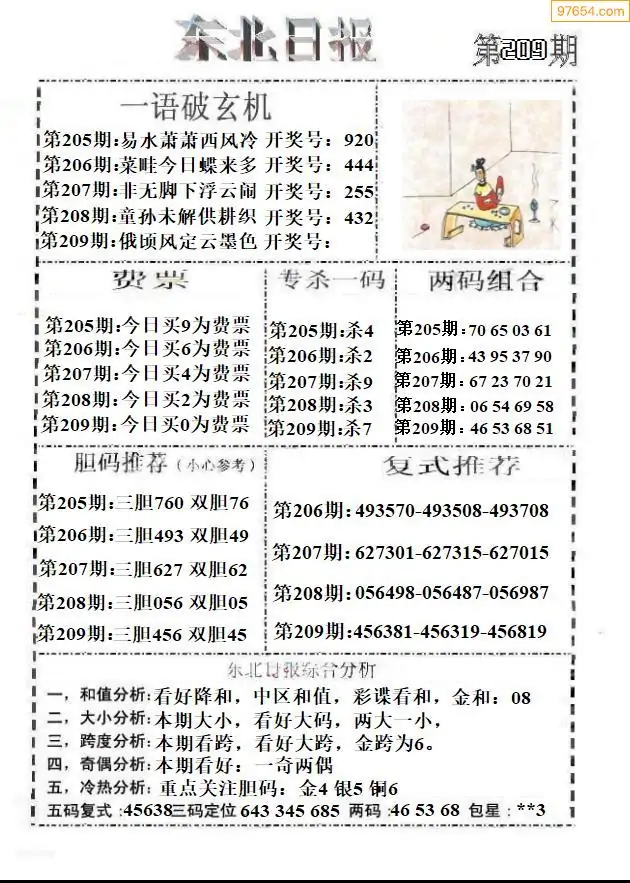 97654.com
东北日报
第209期
一语破玄机
第205期:易水萧萧西风冷 开奖号：920
第206期:菜畦今日蝶来多 开奖号：444
第207期:非无脚下浮云闹 开奖号：255
第208期:童孙未解供耕织 开奖号：432
第209期:俄顷风定云墨色 开奖号：
费票
第205期:今日买9为费票
第206期:今日买6为费票
第207期:今日买4为费票
第208期:今日买2为费票
第209期:今日买0为费票
专杀一码
第205期:杀4
第206期:杀2
第207期:杀9
第208期:杀3
第209期:杀7
两码组合
第205期:70 65 03 61
第206期:43 95 37 90
第207期:67 23 70 21
第208期:06 54 69 58
第209期:46 53 68 51
胆码推荐（小心参考）
第205期:三胆760 双胆76
第206期:三胆493 双胆49
第207期:三胆627 双胆62
第208期:三胆056 双胆05
第209期:三胆456 双胆45
复式推荐
第206期:493570-493508-493708
第207期:627301-627315-627015
第208期:056498-056487-056987
第209期:456381-456319-456819
东北日报综合分析
一，和值分析:看好降和，中区和值，彩谍看和，金和：08
二、大小分析:本期大小，看好大码，两大一小，
三，跨度分析:本期看跨，看好大跨，金跨为6。
四，奇偶分析:本期看好：一奇两偶
五，冷热分析:重点关注胆码：金4 银5 铜6
五码复式:45638三码定位643 345 685 两码:46 53 68 包星:**3